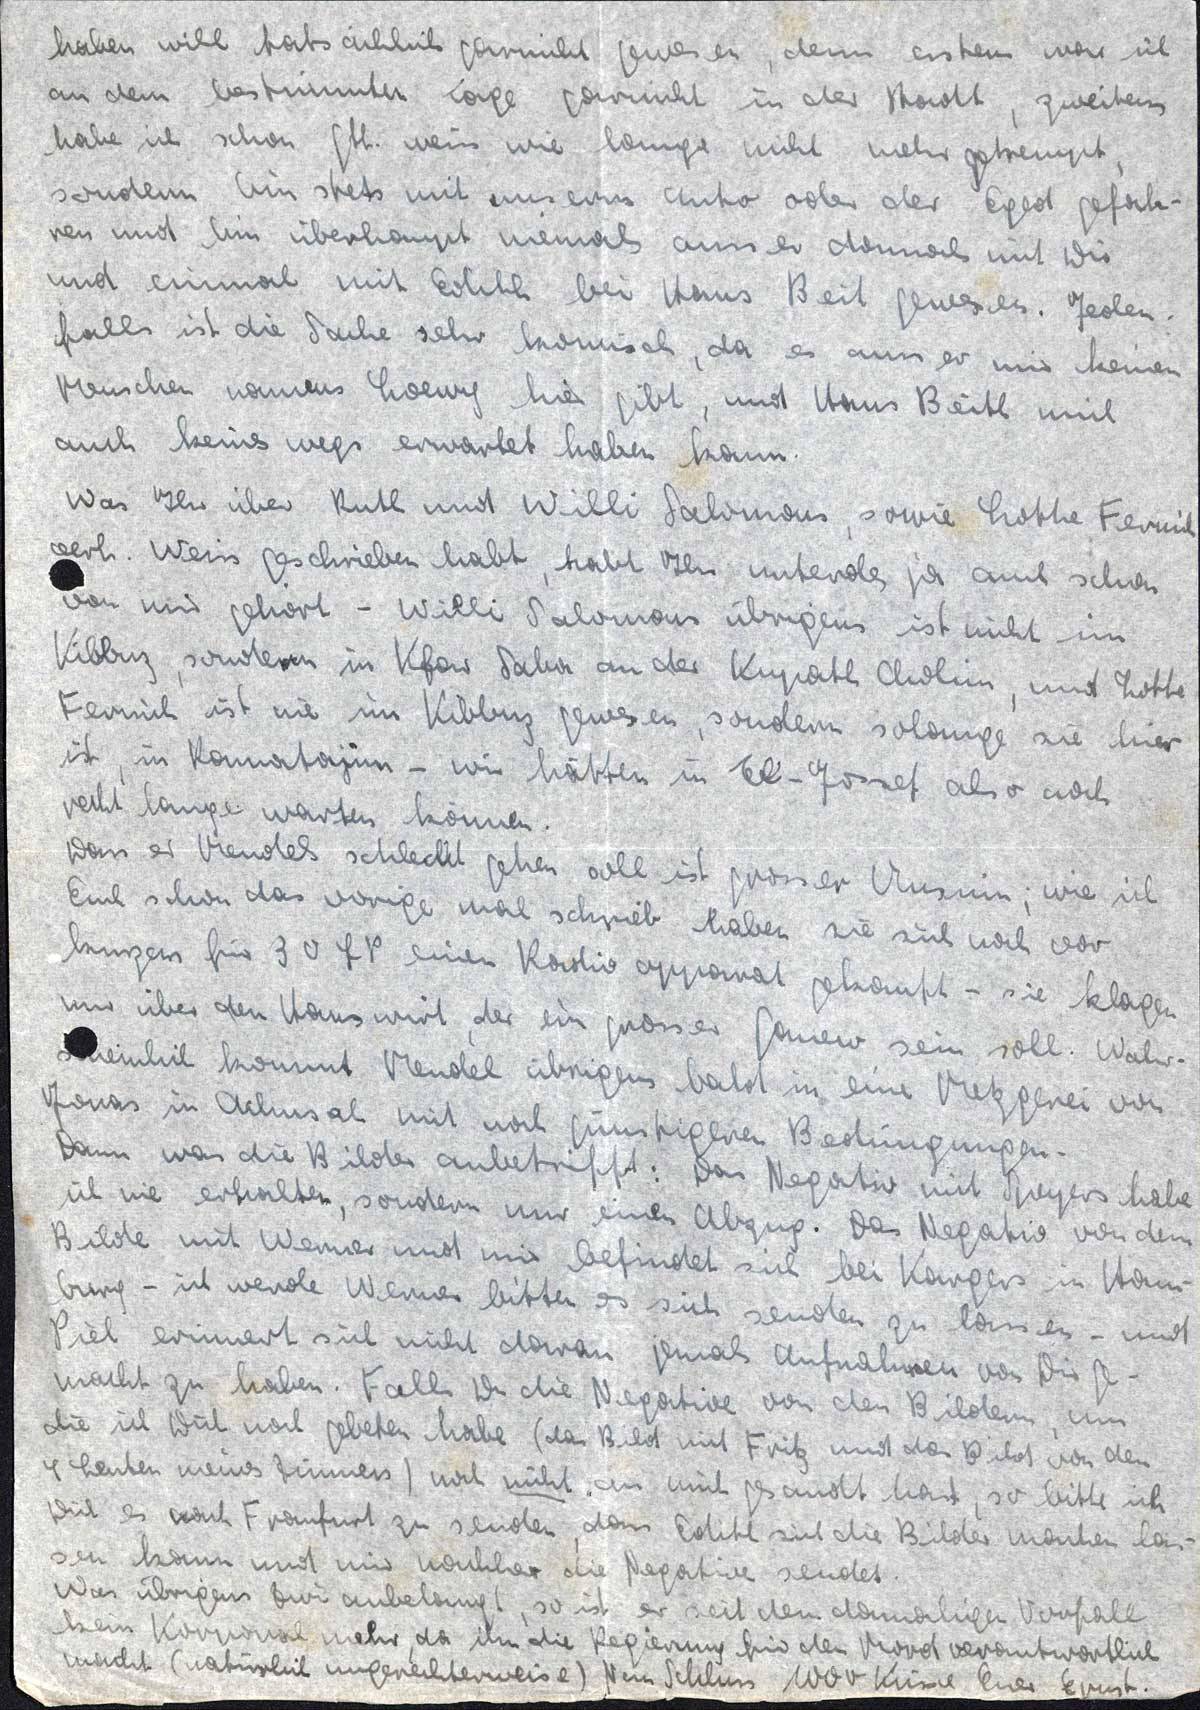 haben will tatsächlich garnicht gewesen, denn erstens war ich
an dem bestimmten Tage garnicht in der Stadt, zweitens
habe ich schon Gtt. weiss wie lange nicht mehr getrempt,
sondern bin stets mit unserm Auto oder der Eged gefah-
ren und bin überhaupt niemals ausser damals mit Dir
und einmal mit Edith bei Hans Beit gewesen. Jeden-
falls ist die Sache sehr komisch, da es ausser mir keinen
Menschen namens Loewy hier gibt, und Hans Beith mich
auch keineswegs erwartet haben kann.
Was Ihr über Ruth und Willi Salomons, sowie Lotte Fernich
verh. Weiss geschrieben habt, habt Ihr unterdes ja auch schon
von mir gehört - Willi Salomons übrigens ist nicht im
Kibbuz, sondern in Kfar Saba an der Kupath Cholim, und Lotte
Fernich ist nie im Kibbuz gewesen, sondern solange sie hier
ist, in Ramatajim - wir hätten in El-Jossef also noch
recht lange warten können.
Dass es Mendels schlecht gehen soll ist grosser Unsinn; wie ich
Euch schon das vorige mal schrieb haben sie sich noch vor
kurzem für 30 £P einen Radio apparat gekauft - sie klagen
nur über den Hauswirt, der ein grosser Ganew sein soll. Wahr-
scheinlich kommt Mendel übrigens bald in eine Metzgerei von
Jonas in Achusah mit noch günstigeren Bedingungen.
Dann was die Bilder anbetrifft: Das Negativ mit Speyers habe
ich nie erhalten, sondern nur einen Abzug. Das Negativ von dem
Bilde mit Werner und mir befindet sich bei Kargers in Ham-
burg - ich werde Werner bitten es sich senden zu lassen - und
Piel erinnert sich nicht daran jemals Aufnahmen von Dir ge-
macht zu haben. Falls Du die Negative von den Bildern, um
die ich Dich noch gebeten habe (das Bild mit Fritz und das Bild von den
4 Leuten meines Zimmers) noch nicht an mich gesandt hast, so bitte ich
Dich es nach Franfurt zu senden, dass Edith sich die Bilder machen las-
sen kann und mir nachher die Negative sendet.
Was übrigens Zwi anbelangt, so ist er seit dem damaligen Vorfall
kein Korporal mehr, da ihn die Regierung für den Mord verantwortlich
macht (natürlich ungerechterweise) Nun Schluss 1000 Küsse Euer Ernst.